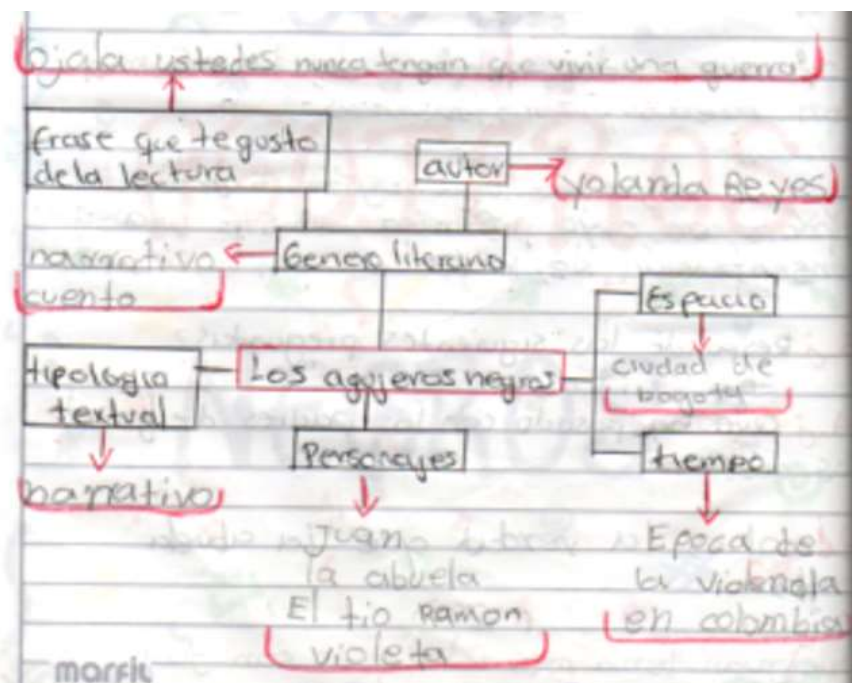 ojala ustedes nunca tengan que vivir una guerra"
frase que te gusto
de la lectura
autor
yolanda Reyes
Genero literario
narrativo
cuento
Espacio
ciudad de
bogota
tipologia
textual
Los agujeros negros
narrativo
Personajes
tiempo
Juan
la abuela
El tio Ramon
violeta
Epoca de
la violencia
en colombia